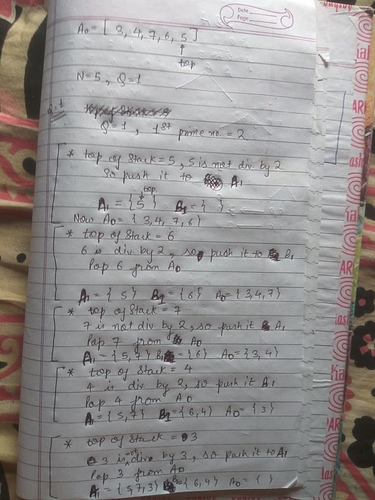 Date
Page
A0 = [ 3, 4, 7, 6, 5 ]
↑
top
N=5, Q=1
Q=1, 1st prime no. = 2
* top of Stack = 5, 5 is not div by 2
So push it to A1
top
A1 = {5} B1 = { }
Now A0 = {3, 4, 7, 6}
* top of Stack = 6
6 is div by 2, so push it to B1
Pop 6 from A0
A1 = {5} B1 = {6} A0 = {3, 4, 7}
* top of Stack = 7
7 is not div by 2, so push it A1
Pop 7 from A0
A1 = {5, 7} B1 = {6} A0 = {3, 4}
* top of Stack = 4
4 is div by 2, so push it A1
Pop 4 from A0
A = {5, 7} B1 = {6, 4} A0 = {3}
* top of Stack = 3
3 is not div by 3, so push it to A1
Pop 3 from A0
A1 = {5, 7, 3} {6, 4} A0 = { }